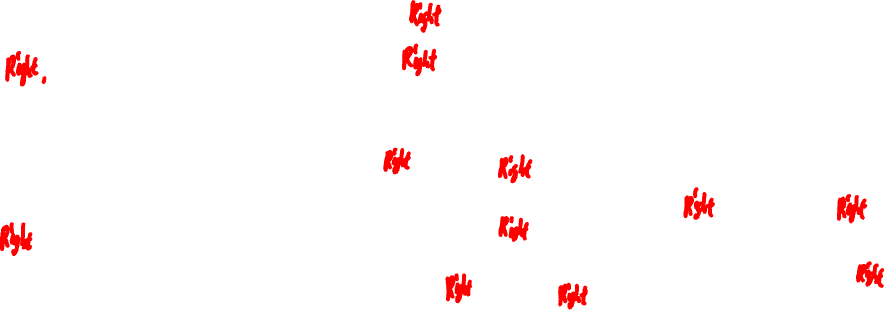 Right
Right
Right,
Right
Right
Right Right
Right
Right
Right
Right
Right